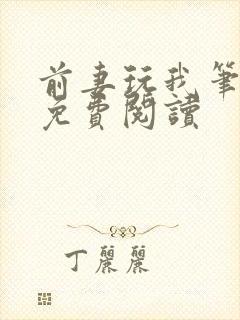 前妻玩我筆
免費閱讀
丁麗麗